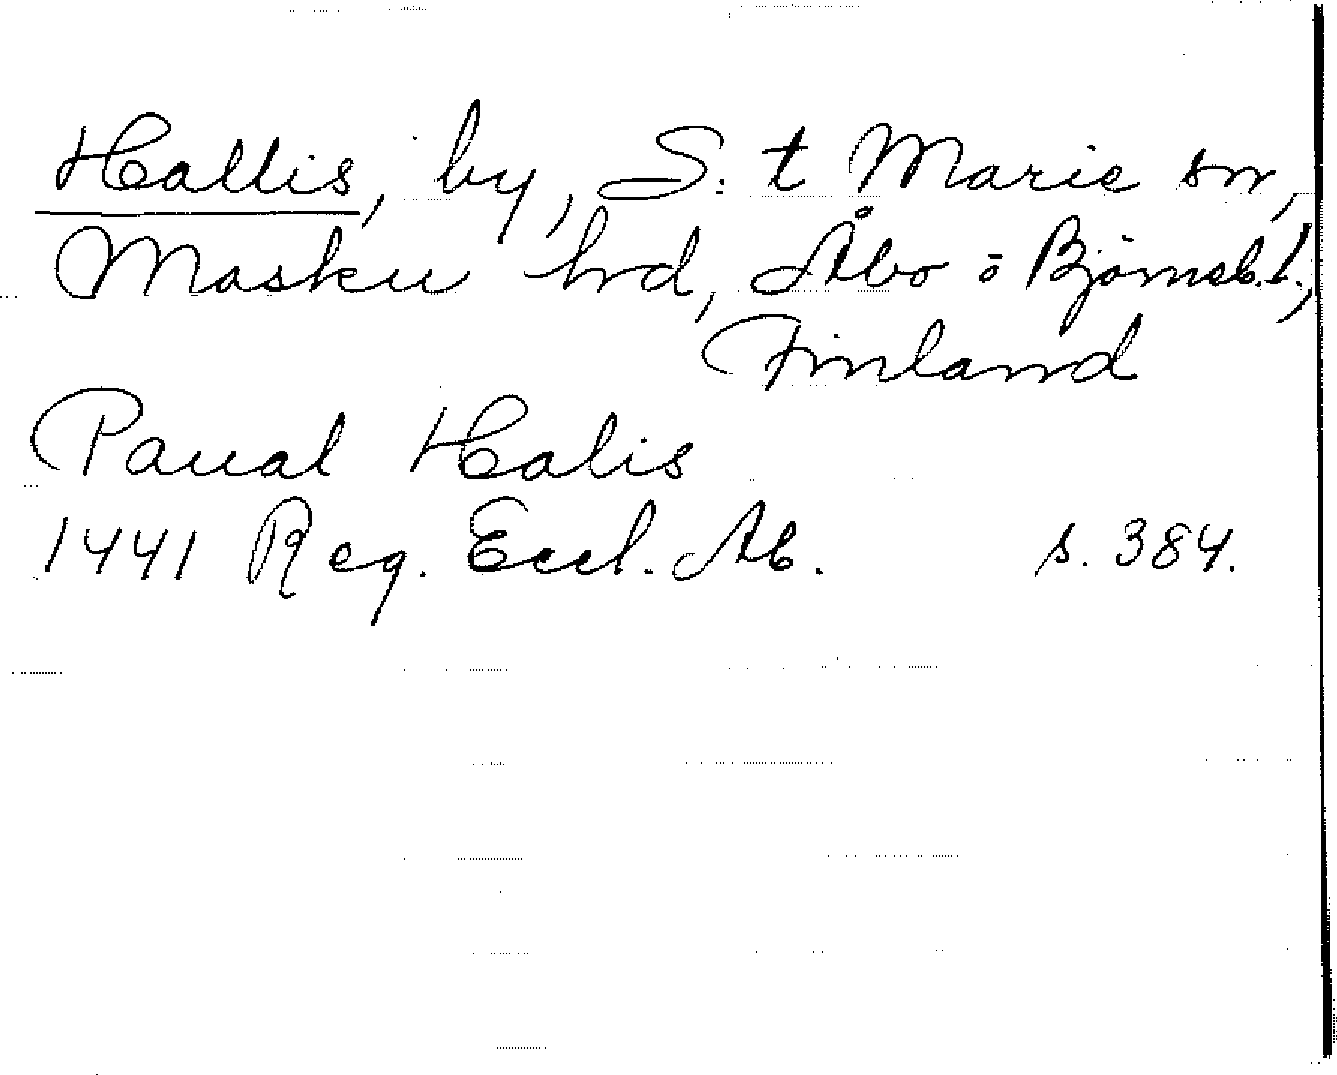 Hallis, by, S:t Marie sn,
Masku hrd, Åbo o Björneb. l.,
Finland
Paual Halis
1441 Reg. Eccl. Ab. s. 384.